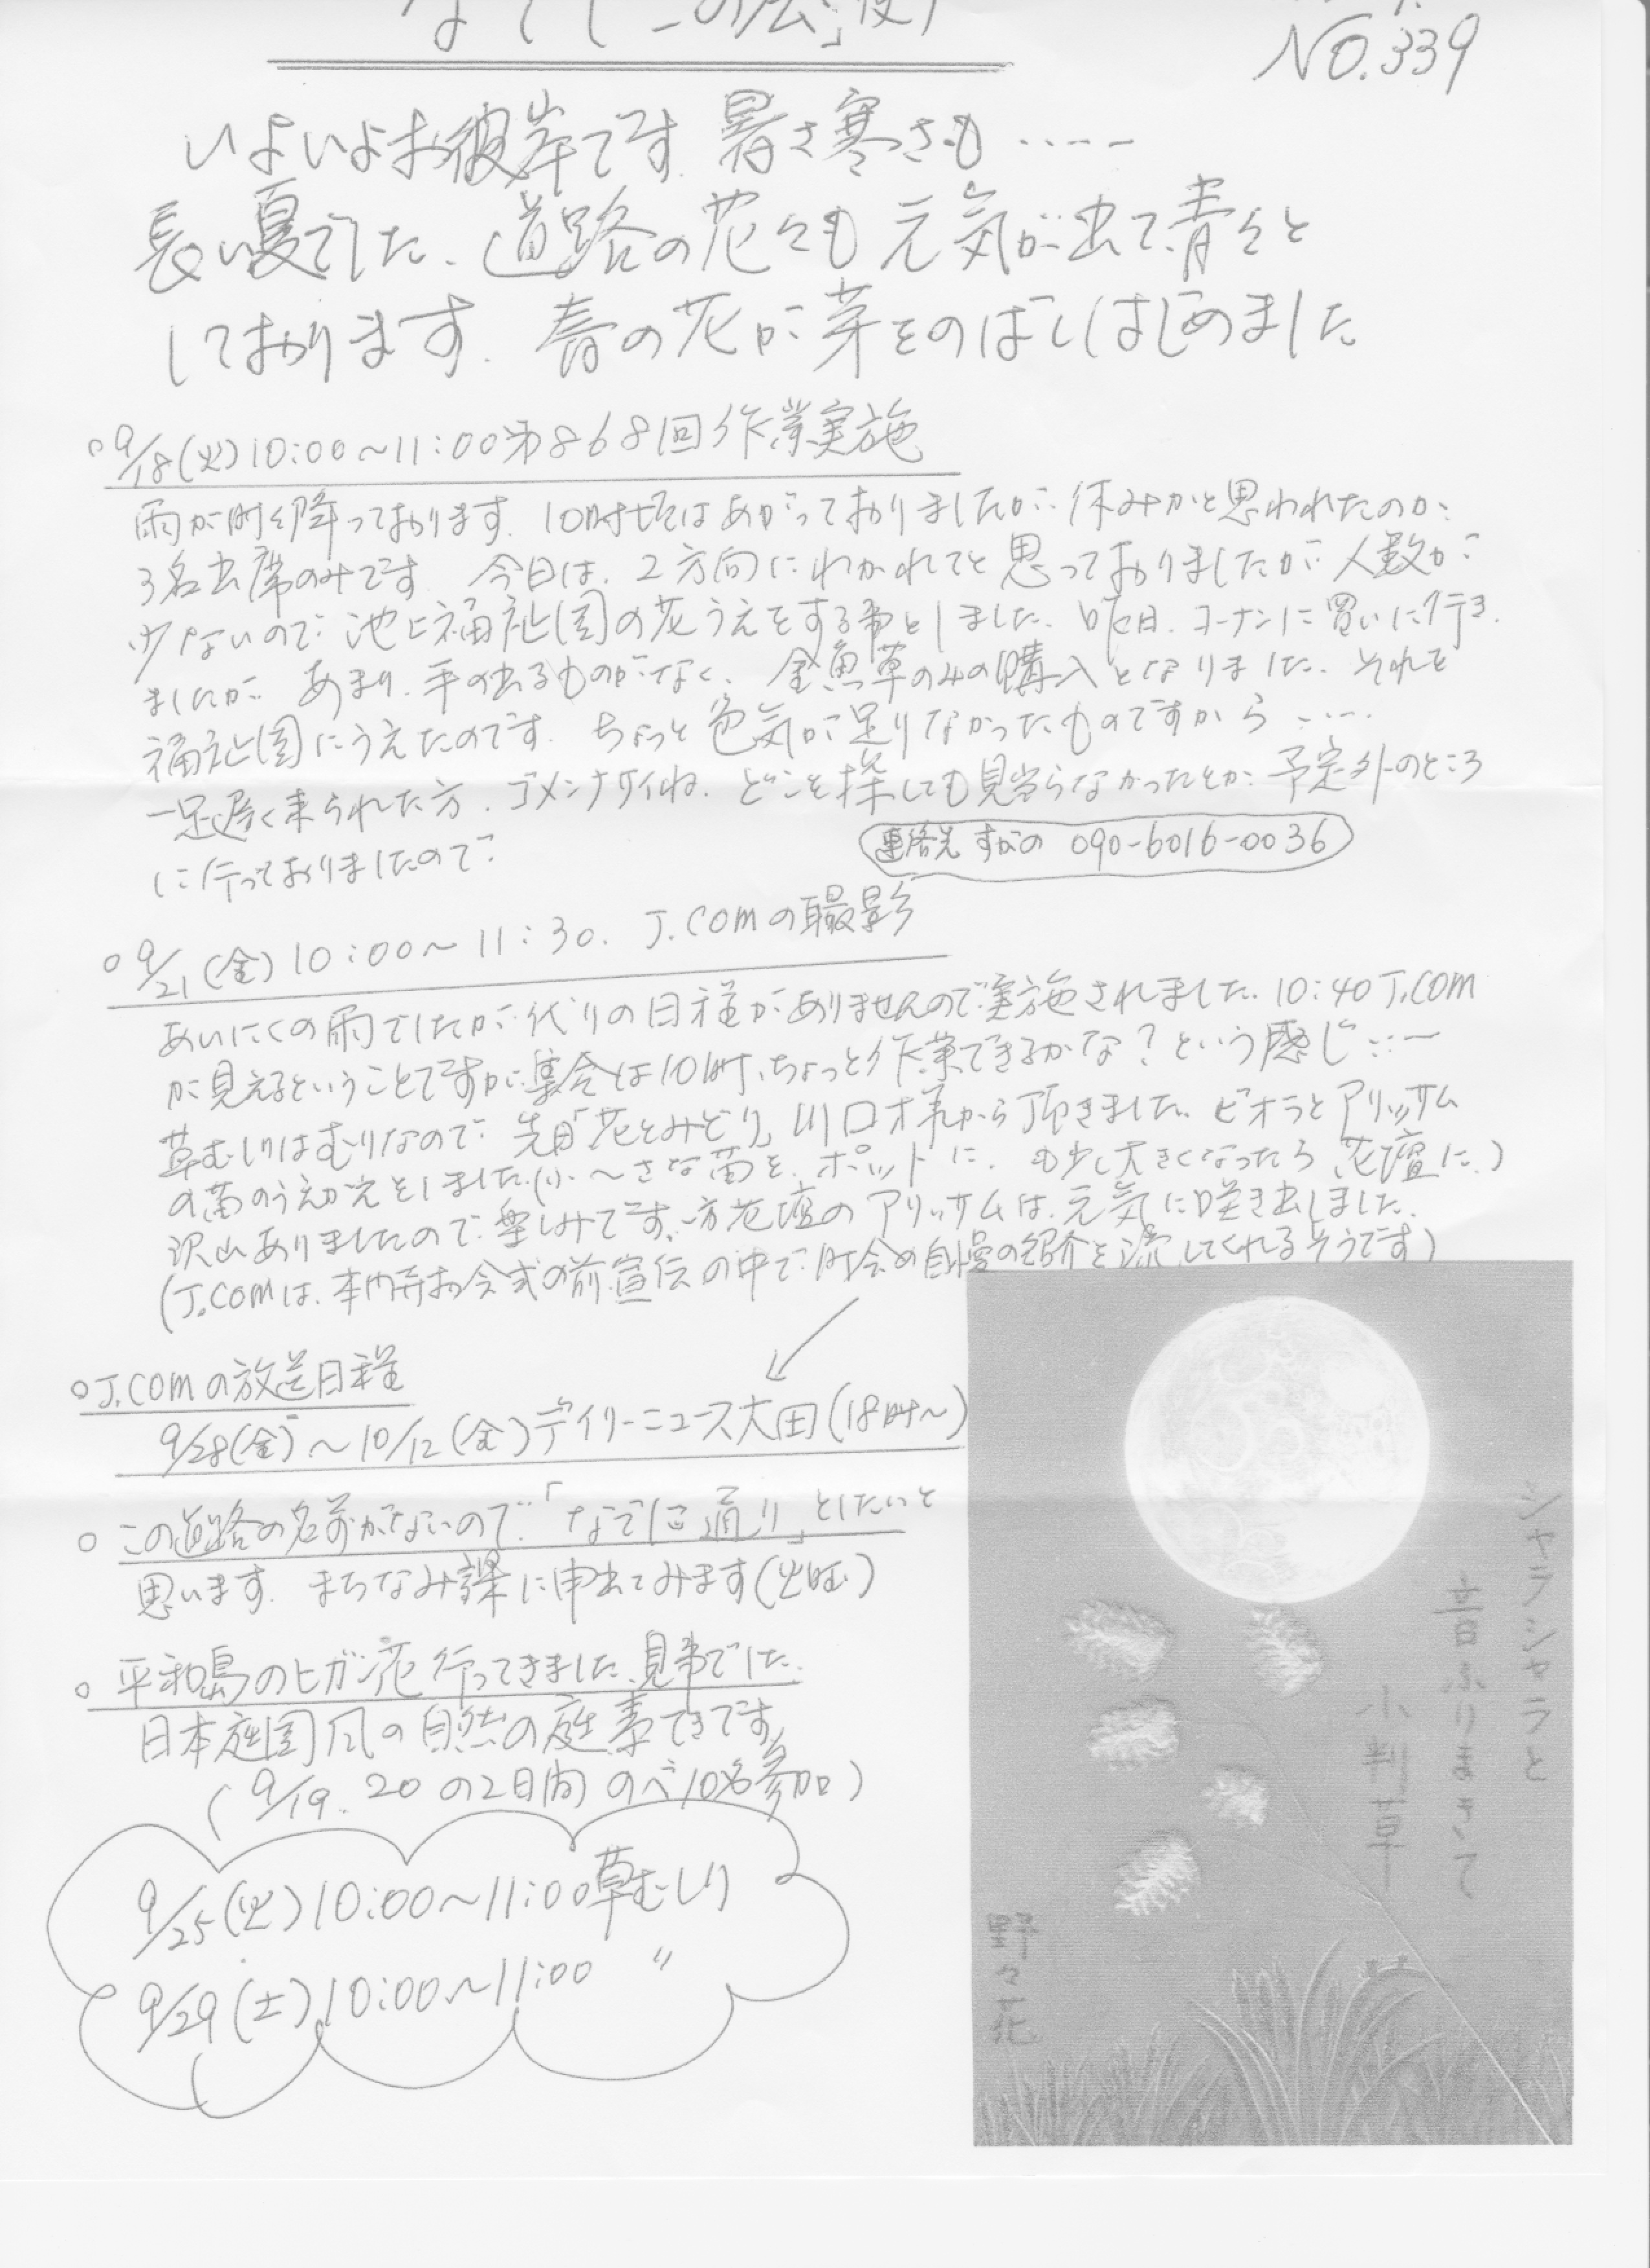 なでしこの会」便り
NO.339
いよいよお彼岸です. 暑さ寒さも ‥‥
長い夏でした、道路の花々も元気が出て、青々と
しております. 春の花が芽をのばしはじめました
○9/18(火)10:00〜11:00第868回作業実施
雨が時々降っております. 10時頃はあがっておりましたが‥休みかと思われたのか、
3名出席のみです 今日は、2方向にわかれてと思っておりましたが 人数が
少ないので 池上福祉園の花うえをする事としました、昨日、コーナンに買いに行き
ましたが あまり、手の出るものがなく、金魚草のみの購入となりました、それを
福祉園にうえたのです. ちょっと色気が足りなかったものですから ‥‥
一足遅く来られた方、ゴメンナサイね、どこを探しても見当らなかったとか、予定外のところ
に行っておりましたので
連絡先 すがの 090-6016-0036
○9/21(金)10:00〜11:30. J.COMの撮影
あいにくの雨でしたが代りの日程がありませんので実施されました、10:40 J.COM
が見えるということですが、集合は10時、ちょっと作業できるかな?という感じ‥ー
草むしりはむりなので 先日「花とみどり」川口才 から頂きました、ビオラとアリッサム
の苗のうえかえとしました、(小〜さな苗を、ポットに、も少し大きくなったら花壇に、)
沢山ありましたので楽しみです、一方花壇のアリッサムは、元気に咲き出しました、
(J.COMは、本門寺お会式の前宣伝の中で町会の自慢の紹介を流してくれるそうです)
○J.COMの放送日程
9/28(金)〜10/12(金)デイリーニュース大田(18時〜)
○ この道路の名前がないので「なでしこ通り」としたいと
思います. まちなみ課に申出てみます(出町)
○ 平和島のヒガン花行ってきました、見事でした、
日本庭園風の自然の庭素てきです、
(9/19、20の2日間 のべ10名参加)
9/25(火)10:00〜11:00草むしり
9/29(土)10:00〜11:00 〃
シャラシャラと
音ふりまいて
小判草